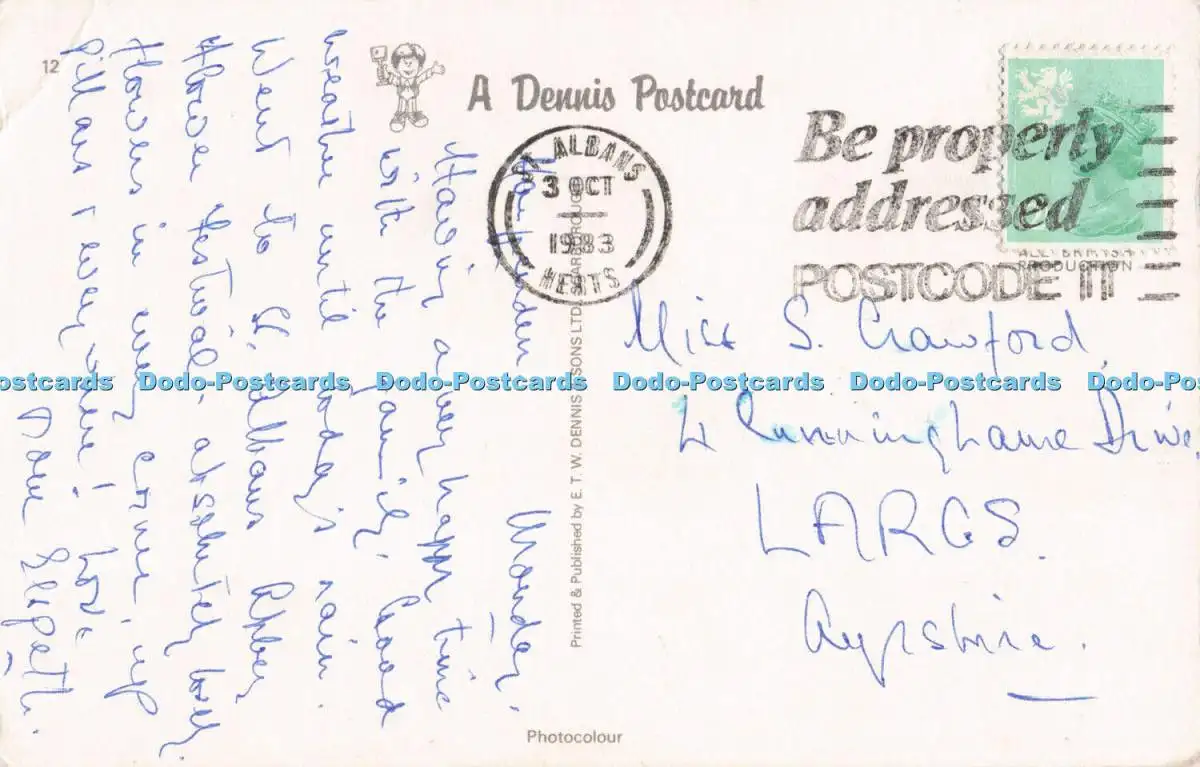 12
A Dennis Postcard
Be properly
addressed
POSTCODE IT
ST. ALBANS
3 OCT
1983
HERTS
Harpenden Monday.
Having a very happy time
with the family. Good
weather until today's rain.
Went to St. Albans Abbey
flower festival - absolutely lovely
flowers in every corner, up
pillars & everywhere! Love
from Elspeth.
Miss S. Crawford,
4 Cunninghame Drive,
LARGS.
Ayrshire.
Printed & Published by E. T. W. DENNIS & SONS LTD., SCARBOROUGH
ALL BRITISH
PRODUCTION
Photocolour
Dodo-Postcards Dodo-Postcards Dodo-Postcards Dodo-Postcards Dodo-Postcards Dodo-Postcards